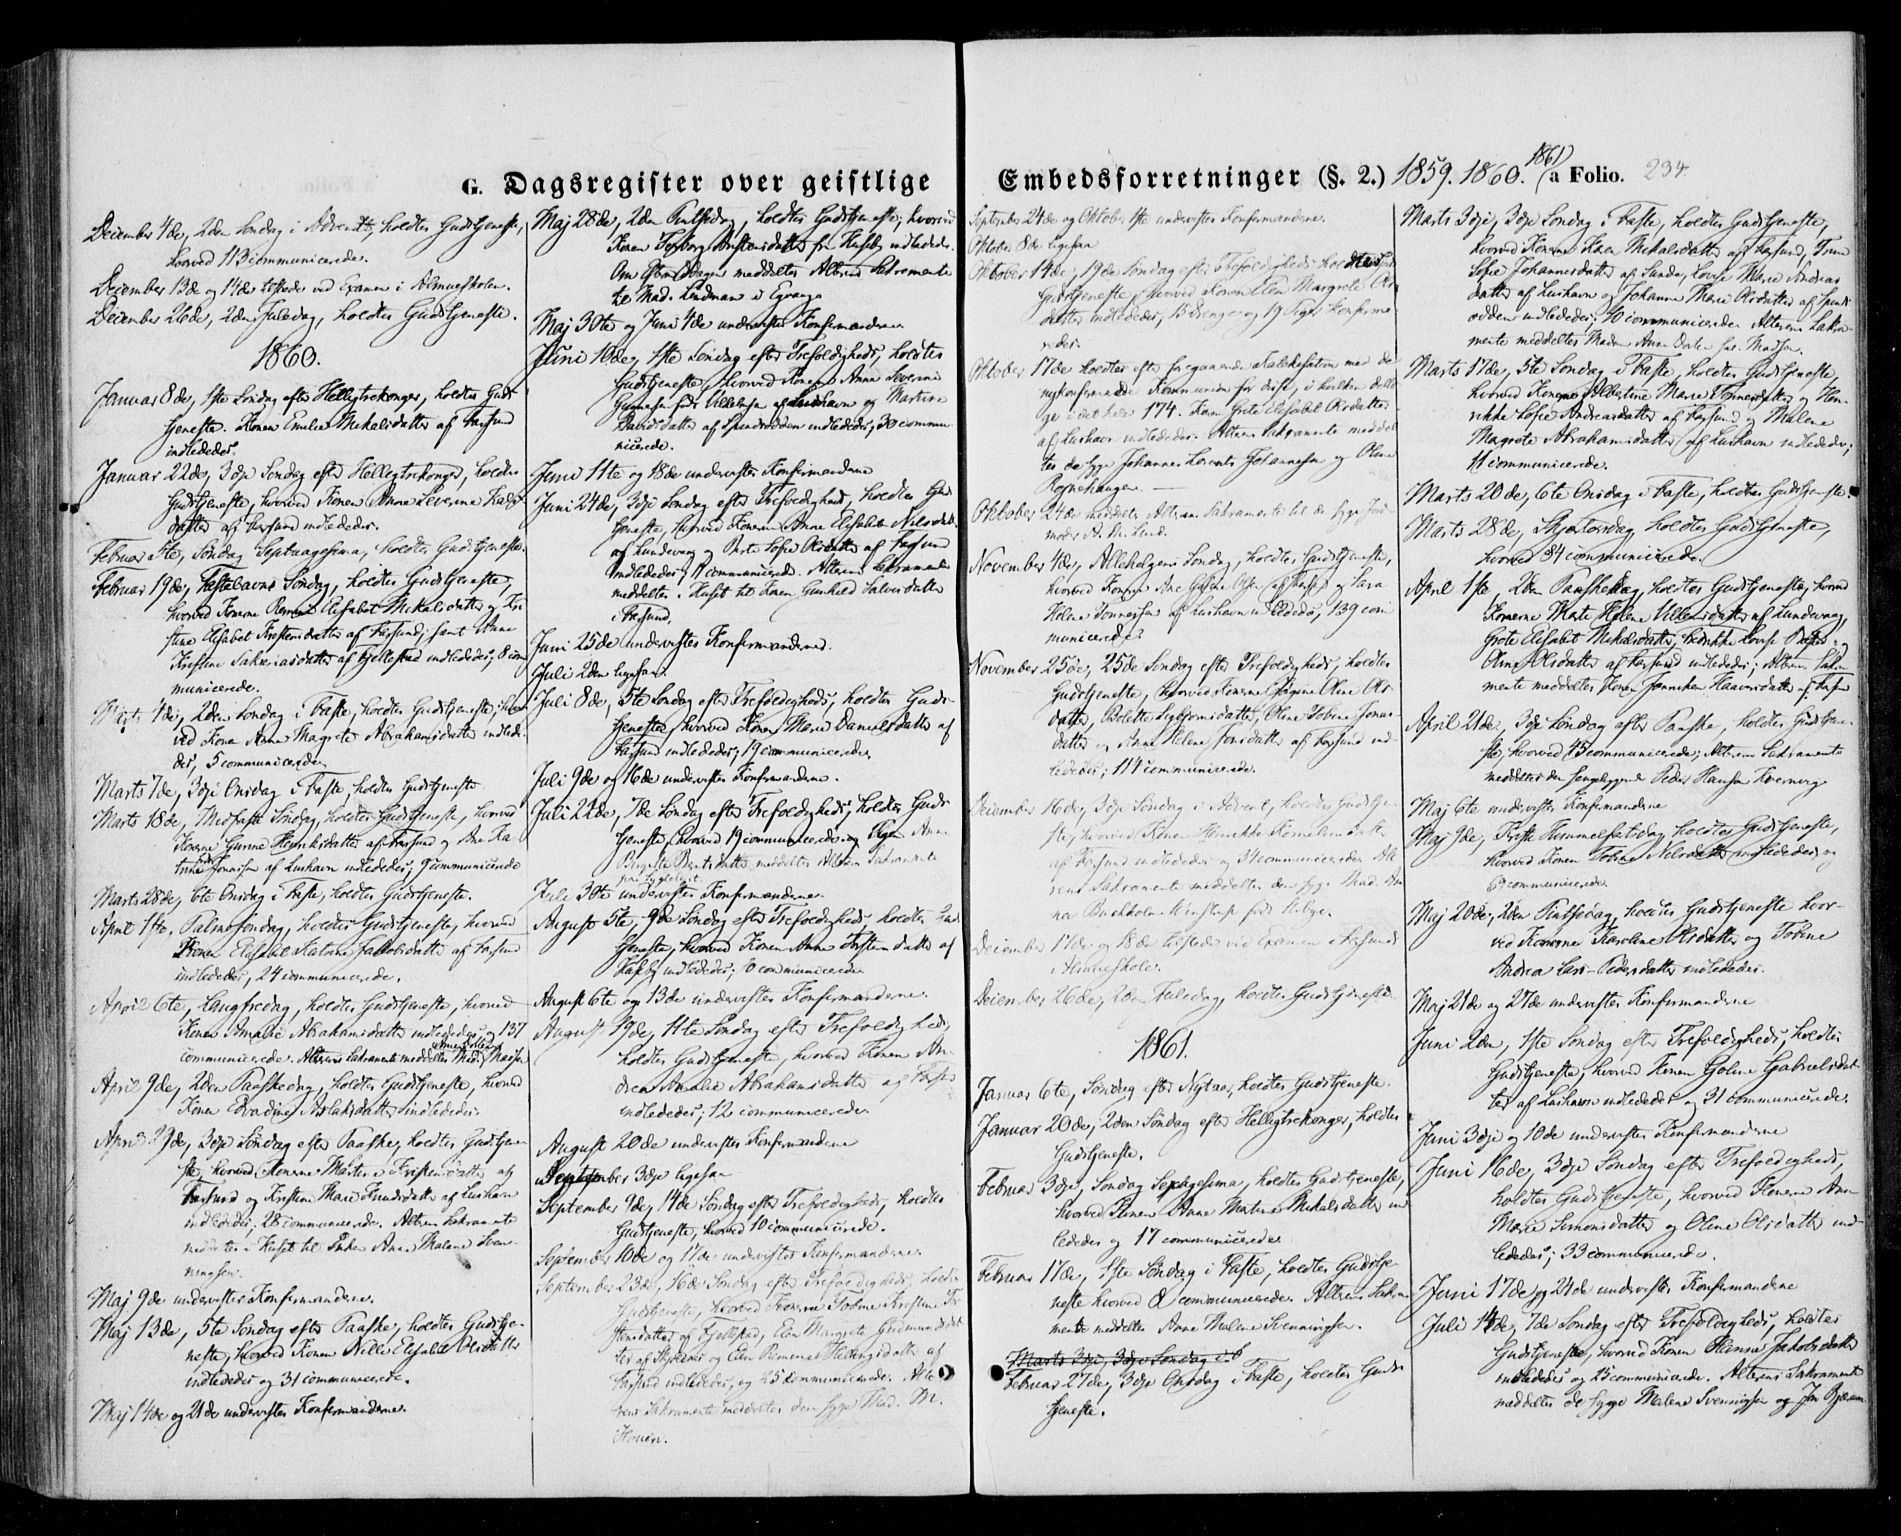 G. Dagsregister over geistlige
Embedsforretninger (§. 2.) 1859. 1860. 1861 a Folio. 234.
December 4de, 2den Søndag i Advent, holdtes Gudstjeneste,
hvorved 113 communicerede.
December 13de og 14de tilstede ved Examen i Almueskolen.
December 26de, 2den Juledag, holdtes Gudstjeneste.
1860.
Januar 8de, 1ste Søndag efter Helligtrekonger, holdtes Guds
tjeneste. Konen Emilie Mikalsdatter af Farsund
indlededes.
Januar 22de, 3dje Søndag efter Helligtrekonger, holdtes
Gudstjeneste, hvorved Konen Anne Severine
datter af Farsund indlededes.
Februar 5te, Søndag Septuagesima, holdtes Gudstjeneste.
Februar 19de, Fastelavns Søndag, holdtes Gudstjeneste,
hvorved Konerne Elisabet Mikalsdatter og
stine Elisabet Kristensdatter af Farsund, samt Anne
Kristine Sakariasdatter af Fjellestad indlededes, 8 com
municerede.
Marts 4de, 2den Søndag i Faste, holdtes Gudstjeneste, hvor
ved Konen Anne Magrete Abrahamsdatter indlede
des, 5 communicerede.
Marts 7de, 3dje Onsdag i Faste, holdtes Gudstjeneste.
Marts 18de, Midfaste Søndag, holdtes Gudstjeneste, hvorved
Konerne Gunne Henriksdatter af Farsund og Ane Ka
trine Jonassen af Lushavn indlededes, 9 communicerede
Marts 28de, 6te Onsdag i Faste, holdtes Gudstjeneste.
April 1ste, Palmesøndag, holdtes Gudstjeneste, hvorved
Konen Elisabet Katrine Jakobsdatter af Farsund
indlededes, 24 communicerede.
April 6te, Langfredag, holdtes Gudstjeneste, hvorved
Konen Amalie Abrahamsdatter indlededes og 137
communicerede. Alterens Sakramente meddeltes Mad.
April 9de, 2den Paaskedag, holdtes Gudstjeneste, hvorved
Konen Edvardine Aslaksdatter indlededes.
April 29de, 3dje Søndag efter Paaske, holdtes Gudstjene
ste, hvorved Konerne Martine Kristensdatter af
Farsund og Kristine Marie Knudsdatter af Lushavn
indlededes; 28 communicerede. Alterens Sakramente
meddeltes i Huset til Enken Anne Malene Sven
ningsen.
Maj 9de undervistes Konfirmanderne.
Maj 13de, 5te Søndag efter Paaske, holdtes Gudstje-
neste, hvorved Konen Nille Elisabet Olsdatter
indlededes og 31 communicerede.
Maj 14de og 21de undervistes Konfirmanderne.
Maj 28de, 2den Pintsedag, holdtes Gudstjeneste, hvorved
Konen Torborg Kristensdatter fra Huseby indlededes.
Om Eftermiddagen meddeltes Alterens Sakramente
til Mad. Lindman i Egvaag.
Maj 30te og Juni 4de undervistes Konfirmanderne
Juni 10de, 1ste Søndag efter Trefoldigheds, holdtes
Gudstjeneste, hvorved Konerne Anne Severine
Gunnesen født Villelmsen af Lushavn og Martine
Berntsdatter af Spindsodden indlededes, 30 commu-
nicerede.
Juni 11te og 18de undervistes Konfirmanderne
Juni 24de, 3dje Søndag efter Trefoldigheds, holdtes Gud
tjeneste, hvorved Konerne Anne Elisabet Nilsdatter
af Lundevaag og Berte Sofie Olsdatter af Farsund
indlededes; 11 communicerede. Alterens Sakramente
meddeltes i Huset til Konen Gunhild Salvesdatter
i Farsund.
Juni 25de undervistes Konfirmanderne.
Juli 2den ligesaa.
Juli 8de, 5te Søndag efter Trefoldigheds, holdtes Guds-
tjeneste, hvorved Konen Marie Danielsdatter af
Farsund indlededes; 19 communicerede.
Juli 9de og 16de undervistes Konfirmanderne.
Juli 22de, 7de Søndag efter Trefoldigheds, holdtes Guds
tjeneste, hvorved 19 communicerede; og Pigen Anne
Birgitte Berntsdatter meddeltes Alterens Sakramente
paa Sygeleiet.
Juli 30te undervistes Konfirmanderne.
August 5te, 9de Søndag efter Trefoldigheds, holdtes Guds
tjeneste, hvorved Konen Anne Torstensdatter af
Huseby indlededes; 10 communicerede.
August 6te og 13de undervistes Konfirmanderne.
August 19de, 11te Søndag efter Trefoldigheds,
holdtes Gudstjeneste, hvorved Konen An-
drea Amalie Abrahamsdatter af Farsund
indlededes; 12 communicerede.
August 20de undervistes Konfirmanderne
September 3dje ligesaa
September 9de, 14de Søndag efter Trefoldigheds, holdtes
Gudstjeneste, hvorved 10 communicerede.
September 10de og 17de undervistes Konfirmanderne.
September 23de, 16de Søndag efter Trefoldigheds, holdtes
Gudstjeneste, hvorved Konerne Tobine Kristine To
stensdatter af Fjellestad, Elen Margrete Gudmundsdat
ter af og Elen Helene Hellengsdatter af
Farsund indlededes, og 25 communicerede. Alte
rens Sakramente meddeltes den syge Mad. M.
Houen.
September 24de og Oktober 1ste undervistes Konfirmanderne.
Oktober 8de ligesaa
Oktober 14de, 19de Søndag efter Trefoldigheds, holdtes
Gudstjeneste, hvorved Konen Elen Margrete Ols
datter indlededes, 13 Drenge og 19 Piger konfirme
redes.
Oktober 17de holdtes efter foregaaende Katekisation med de
nykonfirmerede Kommunion for disse, i hvilken deltog
ge i det hele 174. Konen Grete Elisabet Olsdatter
af Lushavn indlededes. Alterens Sakramente meddel
tes de syge Johannes Lorents Johannesen og Oline
Rognehaugen.
Oktober 24de meddeltes Alterens Sakramente til den syge Jord
moder A. M. Lund.
November 4de, Allehelgens Søndag, holdtes Gudstjeneste,
hvorved Konerne Ane Oline Olsen af Farsund og Sara
Helene Tønnesen af Lushavn indlededes, 139 com
municerede.
November 25de, 25de Søndag efter Trefoldigheds, holdtes
Gudstjeneste, hvorved Konerne Jørgine Oline Ols
datter, Bolette Sigbjørnsdatter, Oline Tobine Jonas
datter og Anne Helene Jonsdatter af Farsund ind
lededes; 114 communicerede.
December 16de, 3dje Søndag i Advent, holdtes Gudstje
ste, hvorved Konen Henrikke Kornelius datter
af Farsund indlededes og 34 communicerede. Alte
rens Sakramente meddeltes den syge Mad. An
na Buchholm Winstrup født Heibye.
December 17de og 18de tilstede ved Examen i Farsunds
Almueskole.
December 26de, 2den Juledag, holdtes Gudstjeneste.
1861.
Januar 6te, Søndag efter Nytaar, holdtes Gudstjeneste.
Januar 20de, 2den Søndag efter Helligtrekonger, holdtes
Gudstjeneste.
Februar 3dje, Søndag Sexagesima, holdtes Gudstjeneste,
hvorved Konen Anne Martine Mikalsdatter ind
lededes og 17 communicerede.
Februar 17de, 1ste Søndag i Faste, holdtes Gudstje
neste hvorved 8 communicerede. Alterens Sakra
mente meddeltes Anne Malene Svenningsen.
Marts 3dje, 3dje Søndag i F
Februar 27de, 3dje Onsdag i Faste, holdtes Guds
tjeneste.
Marts 3dje, 3dje Søndag i Faste, holdtes Gudstjeneste,
hvorved Konerne Elen Mikalsdatter af Farsund, Trine
Sofie Johannesdatter af Sunde, Lovise Marie Andreas
datter af Lushavn og Johanne Marie Olsdatter af Spinds
odden indlededes; 10 communicerede. Alterens Sakra-
mente meddeltes Madm. Anne Dorte sal. Madsen.
Marts 17de, 5te Søndag i Faste, holdtes Gudstjeneste,
hvorved Konerne Albertine Marie Tønnesdatter og Hen-
rikke Sofie Andreasdatter af Farsund og Malene
Magrete Abrahamsdatter af Lushavn indlededes;
11 communicerede.
Marts 20de, 6te Onsdag i Faste, holdtes Gudstjeneste
Marts 28de, Skjærtorsdag, holdtes Gudstjeneste,
hvorved 84 communicerede.
April 1ste, 2den Paaskedag, holdtes Gudstjeneste, hvorved
Konerne Marte Helene Villumsdatter af Lundevaag,
Grete Elisabet Mikalsdatter, Henrikke Lovise
Oline Olsdatter af Farsund indlededes; Alterens Sakra
mente meddeltes Konen Janniken Haavorsdatter af Farsun
April 21de, 3dje Søndag efter Paaske, holdtes Gudstjene-
ste, hvorved 45 communicerede; Alterens Sakramente
meddeltes den sengeliggende Peder Hansen Kverneng
Maj 6te undervistes Konfirmanderne
Maj 9de, Kristi Himmelfartsdag holdtes Gudstjeneste,
hvorved Konen Tobine Nilsdatter indlededes og
69 communicerede.
Maj 20de, 2den Pintsedag, holdtes Gudstjeneste hvor-
ved Konerne Karoline Olsdatter og Tobine
Andrea Lars-Pedersdatter indlededes.
Maj 21de og 27de undervistes Konfirmanderne
Juni 2den, 1ste Søndag efter Trefoldigheds, holdtes
Gudstjeneste, hvorved Konen Goline Gabrielsdat
ter af Lushavn indlededes og 31 communicerede.
Juni 3dje og 10de undervistes Konfirmanderne
Juni 16de, 3dje Søndag efter Trefoldigheds,
holdtes Gudstjeneste, hvorved Konerne Ane
Marie Simonsdatter og Oline Olsdatter ind-
lededes; 33 communicerede.
Juni 17de og 24de undervistes Konfirmanderne
Juli 14de, 7de Søndag efter Trefoldigheds, holdtes
Gudstjeneste, hvorved Konen Hanne Jakobsdatter
indlededes og 25 communicerede. Alterens Sakramente
meddeltes de syge Malene Svenningsen og Jon Bjørum